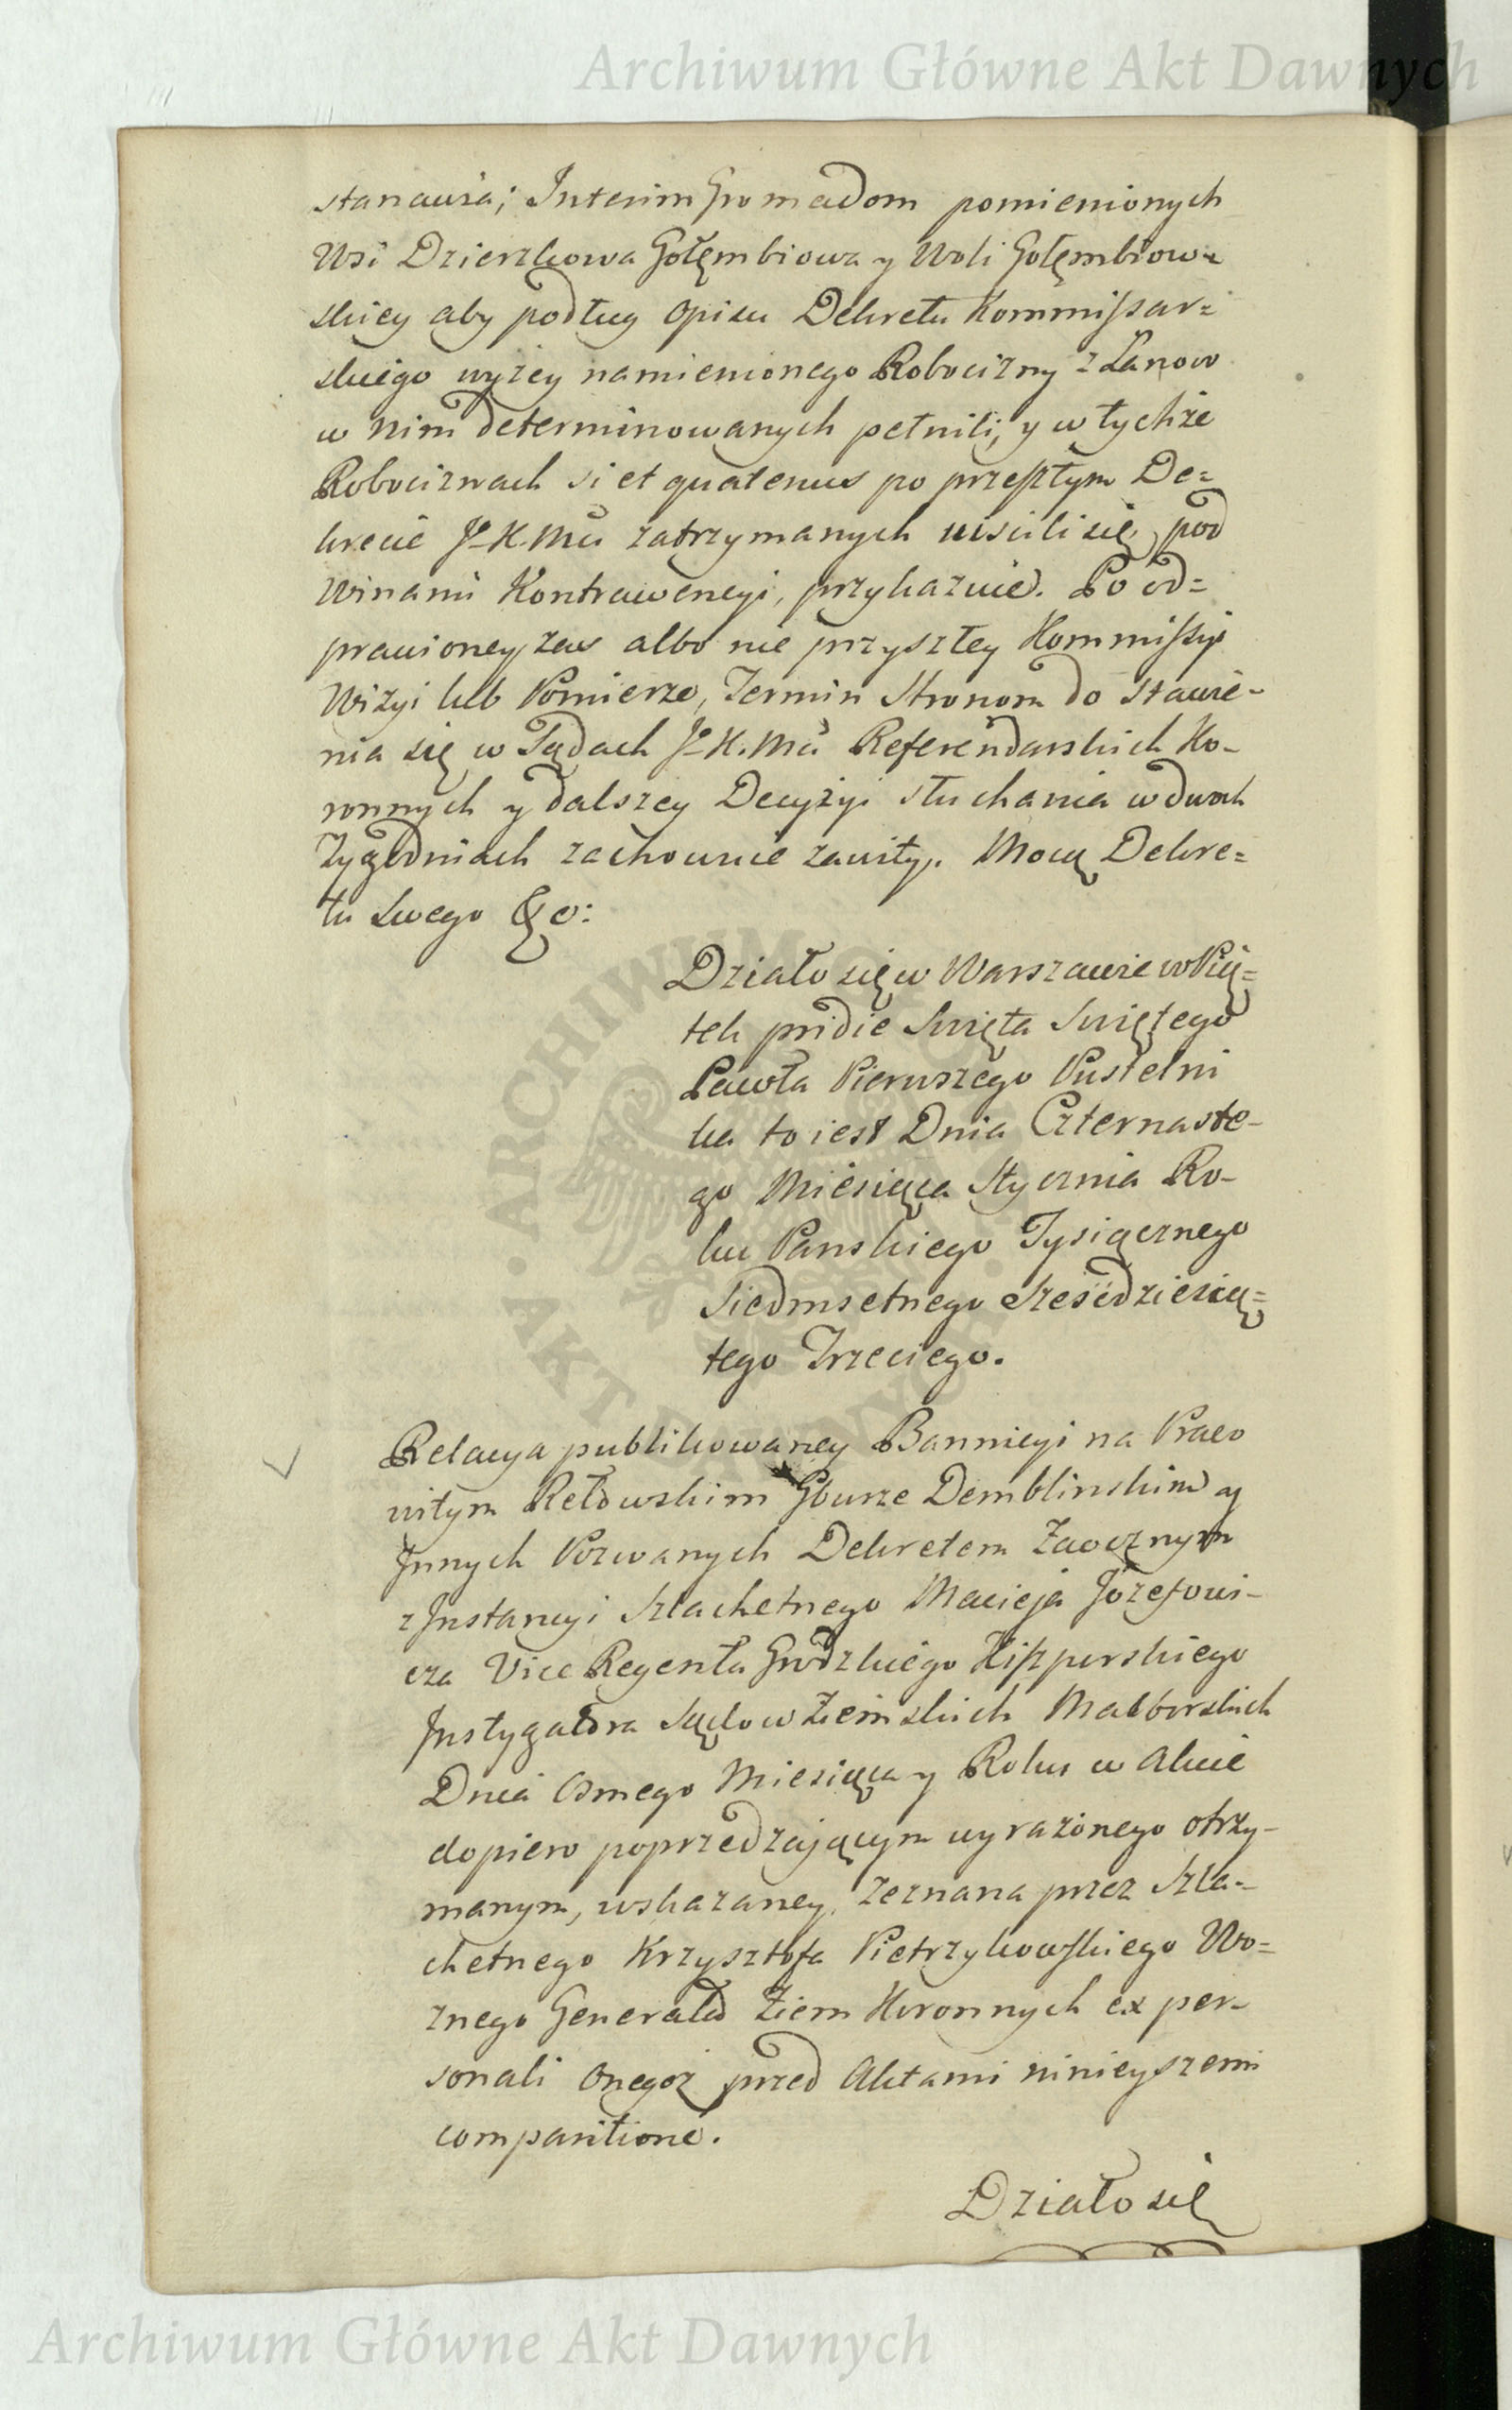 Archiwum Główne Akt Dawnych
stanawia; Interim Gromadom pomienionych
Wsi Dzierzkowa Gołęmbiowa y Woli Gołęmbiow-
skiey aby podług opisu Dekretu Kommissar=
skiego wyżey namienionego Robocizny z Łanow
w nim determinowanych pełnili, y w tychże
Robociznach si et quatenus po przeszłym De=
krecie JoK.Mci zatrzymanych uiscili się, pod
winami Kontrawencyi, przykazuie. Po od=
prawioney zas albo nie przyszłey Kommissyi
Wizyi lub Pomierze, Termin Stronom do stawie-
nia się w Sądach JoK.Mci Referendarskich Ko-
ronnych y dalszey Decyzyi słuchania w dwoch
Tygodniach zachowuie zawity. Mocą Dekre=
tu swego &c:
Działo się w Warszawie w Pią=
tek pridie Swięta Swiętego
Pawła Pierwszego Pustelni
ka to iest Dnia Czternaste-
go Miesiąca Stycznia Ro-
ku Panskiego Tysiącznego
Siedmsetnego Szesćdziesią=
tego Trzeciego.
Relacya publikowaney Bannicyi na Praco
witym Retowskim Gburze Demblinskim y
Innych Pozwanych Dekretem Zaocznym
z Instancyi Szlachetnego Macieja Józefowi-
cza Vice Regenta Grodzkiego Kiszporskiego
Instygatora Sądow Ziemskich Malborskich
Dnia Osmego Miesiąca y Roku w Akcie
dopiero poprzedzającym wyrażonego otrzy-
manym, wskazaney, zeznana przez Szla-
chetnego Krzysztofa Pietrzykowskiego Wo=
znego Generała Ziem Koronnych ex per-
sonali onegoż przed Aktami ninieyszemi
comparitione.
Działo się
Archiwum Główne Akt Dawnych